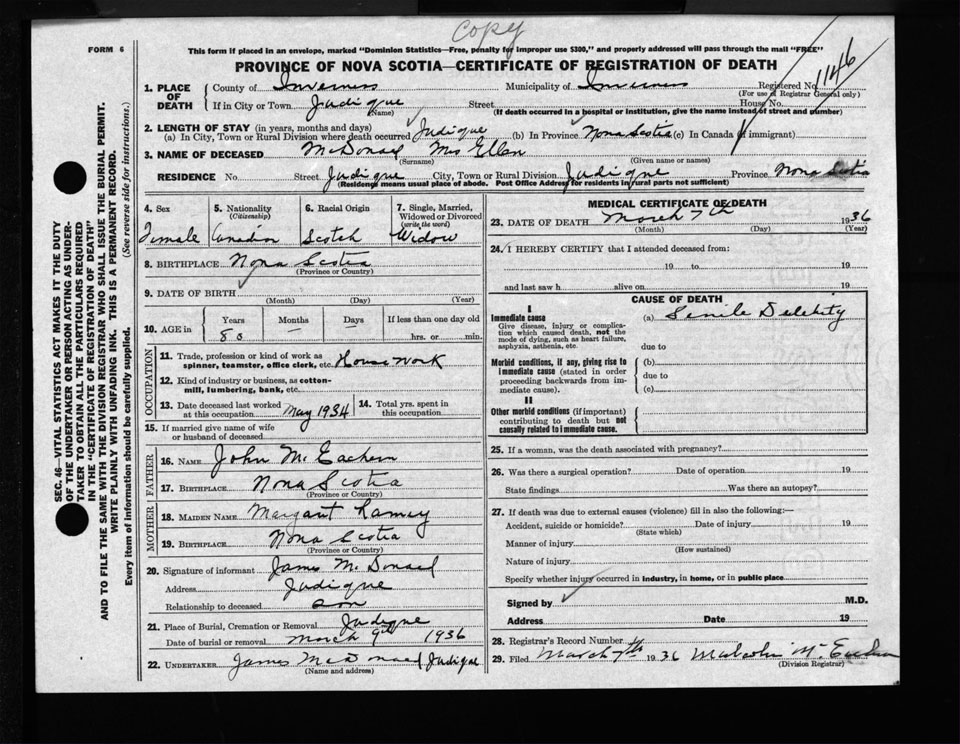 Copy
FORM 6
This form if placed in an envelope, marked "Dominion Statistics—Free, penalty for improper use $300," and properly addressed will pass through the mail "FREE"
PROVINCE OF NOVA SCOTIA—CERTIFICATE OF REGISTRATION OF DEATH
1146
1. PLACE OF DEATH
County of Inverness Municipality of Inverness Registered No.
(For use of Registrar General only)
If in City or Town Judique Street House No.
(Name) (If death occurred in a hospital or institution, give the name instead of street and number)
2. LENGTH OF STAY (in years, months and days)
(a) In City, Town or Rural Division where death occurred Judique (b) In Province Nova Scotia (c) In Canada (if immigrant)
3. NAME OF DECEASED McDonald Mrs Ellen
(Surname) (Given name or names)
RESIDENCE No. Street Judique City, Town or Rural Division Judique Province Nova Scotia
(Residence means usual place of abode. Post Office Address for residents in rural parts not sufficient)
4. Sex
Female
5. Nationality
(Citizenship)
Canadian
6. Racial Origin
Scotch
7. Single, Married, Widowed or Divorced
(write the word)
Widow
8. BIRTHPLACE Nova Scotia
(Province or Country)
9. DATE OF BIRTH
(Month) (Day) (Year)
10. AGE in
Years Months Days If less than one day old
80 — — hrs. or min.
OCCUPATION
11. Trade, profession or kind of work as
spinner, teamster, office clerk, etc. House work
12. Kind of industry or business, as cotton-
mill, lumbering, bank, etc.
13. Date deceased last worked
at this occupation May 1934
14. Total yrs. spent in
this occupation
15. If married give name of wife
or husband of deceased
FATHER
16. NAME John McEachern
17. BIRTHPLACE Nova Scotia
(Province or Country)
MOTHER
18. MAIDEN NAME Margaret
19. BIRTHPLACE Nova Scotia
(Province or Country)
20. Signature of informant James McDonald
Address Judique
Relationship to deceased son
21. Place of Burial, Cremation or Removal Judique
Date of burial or removal March 9th 1936
22. UNDERTAKER James McDonald Judique
(Name and address)
MEDICAL CERTIFICATE OF DEATH
23. DATE OF DEATH March 7th 1936
(Month) (Day) (Year)
24. I HEREBY CERTIFY that I attended deceased from:
19 to 19
and last saw h alive on 19
CAUSE OF DEATH
I
Immediate cause (a) Senile Debility
Give disease, injury or complica-
tion which caused death, not the
mode of dying, such as heart failure,
asphyxia, asthenia, etc.
due to
Morbid conditions, if any, giving rise to
immediate cause (stated in order
proceeding backwards from im-
mediate cause).
(b)
due to
(c)
II
Other morbid conditions (if important)
contributing to death but not
causally related to immediate cause.
25. If a woman, was the death associated with pregnancy?
26. Was there a surgical operation? Date of operation 19
State findings Was there an autopsy?
27. If death was due to external causes (violence) fill in also the following:—
Accident, suicide or homicide? Date of injury 19
(State which)
Manner of injury
(How sustained)
Nature of injury
Specify whether injury occurred in industry, in home, or in public place
Signed by M.D.
Address Date 19
28. Registrar's Record Number
29. Filed March 7th 1936 Malcolm McEachern
(Division Registrar)
SEC. 46—VITAL STATISTICS ACT MAKES IT THE DUTY
OF THE UNDERTAKER OR PERSON ACTING AS UNDER-
TAKER TO OBTAIN ALL THE PARTICULARS REQUIRED
IN THE "CERTIFICATE OF REGISTRATION OF DEATH"
AND TO FILE THE SAME WITH THE DIVISION REGISTRAR WHO SHALL ISSUE THE BURIAL PERMIT.
WRITE PLAINLY WITH UNFADING INK. THIS IS A PERMANENT RECORD.
Every item of information should be carefully supplied. (See reverse side for instructions.)